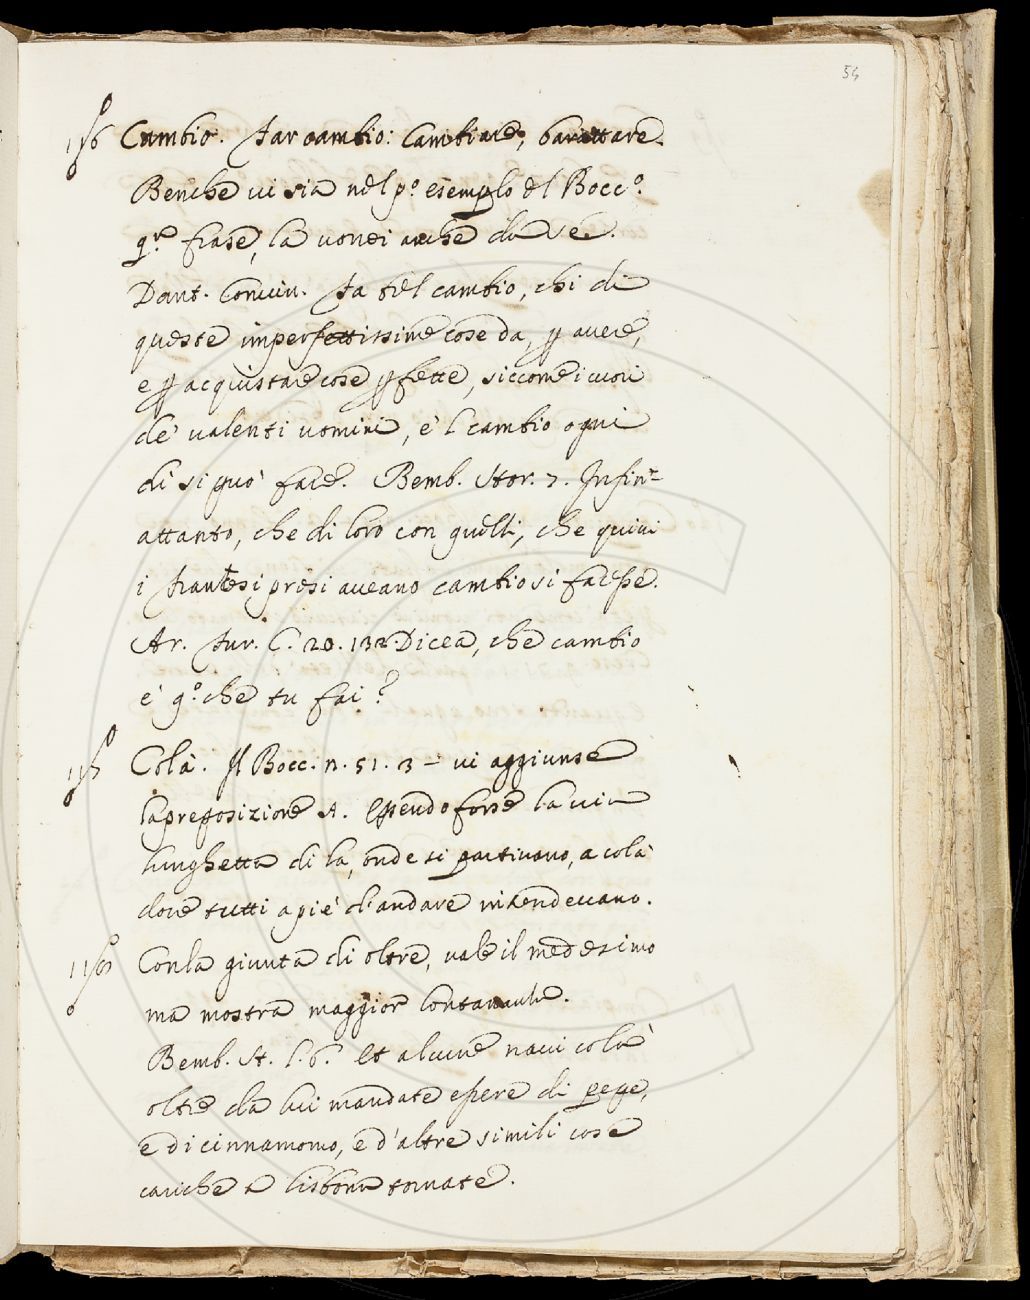 54
Cambio. Far cambio: Cambiare, barattare.
Benche vi sia nel p.o esemplo del Bocc.o
q.ta frase, la vorrei anche da se.
Dant. Conviv. Fa tal cambio, chi di
queste imperfettissime cose da, p avere,
e p acquistare cose pfette, siccome i cuori
de' valenti uomini, e 'l cambio ogni
dì si può fare. Bemb. Stor. 7. Infin=
attanto, che di loro con quelli, che quivi
i Franzesi presi aveano cambio si facesse.
Ar. Fur. C. 20. 132. Dicea, che cambio
è q.o che tu fai?
Colà. Il Bocc. n. 51. 3 – vi aggiunse
la preposizione A. Essendo forse la via
lunghetta di la, onde si partivano, a colà
dove tutti a piè d'andare intendevano.
Con la giunta di oltre, vale il medesimo
ma mostra maggior lontananza.
Bemb. St. l. 6. Et alcune navi colà
oltre da lui mandate essere di pepe,
e di cinnamomo, e d'altre simili cose
cariche a Lisbona tornate.